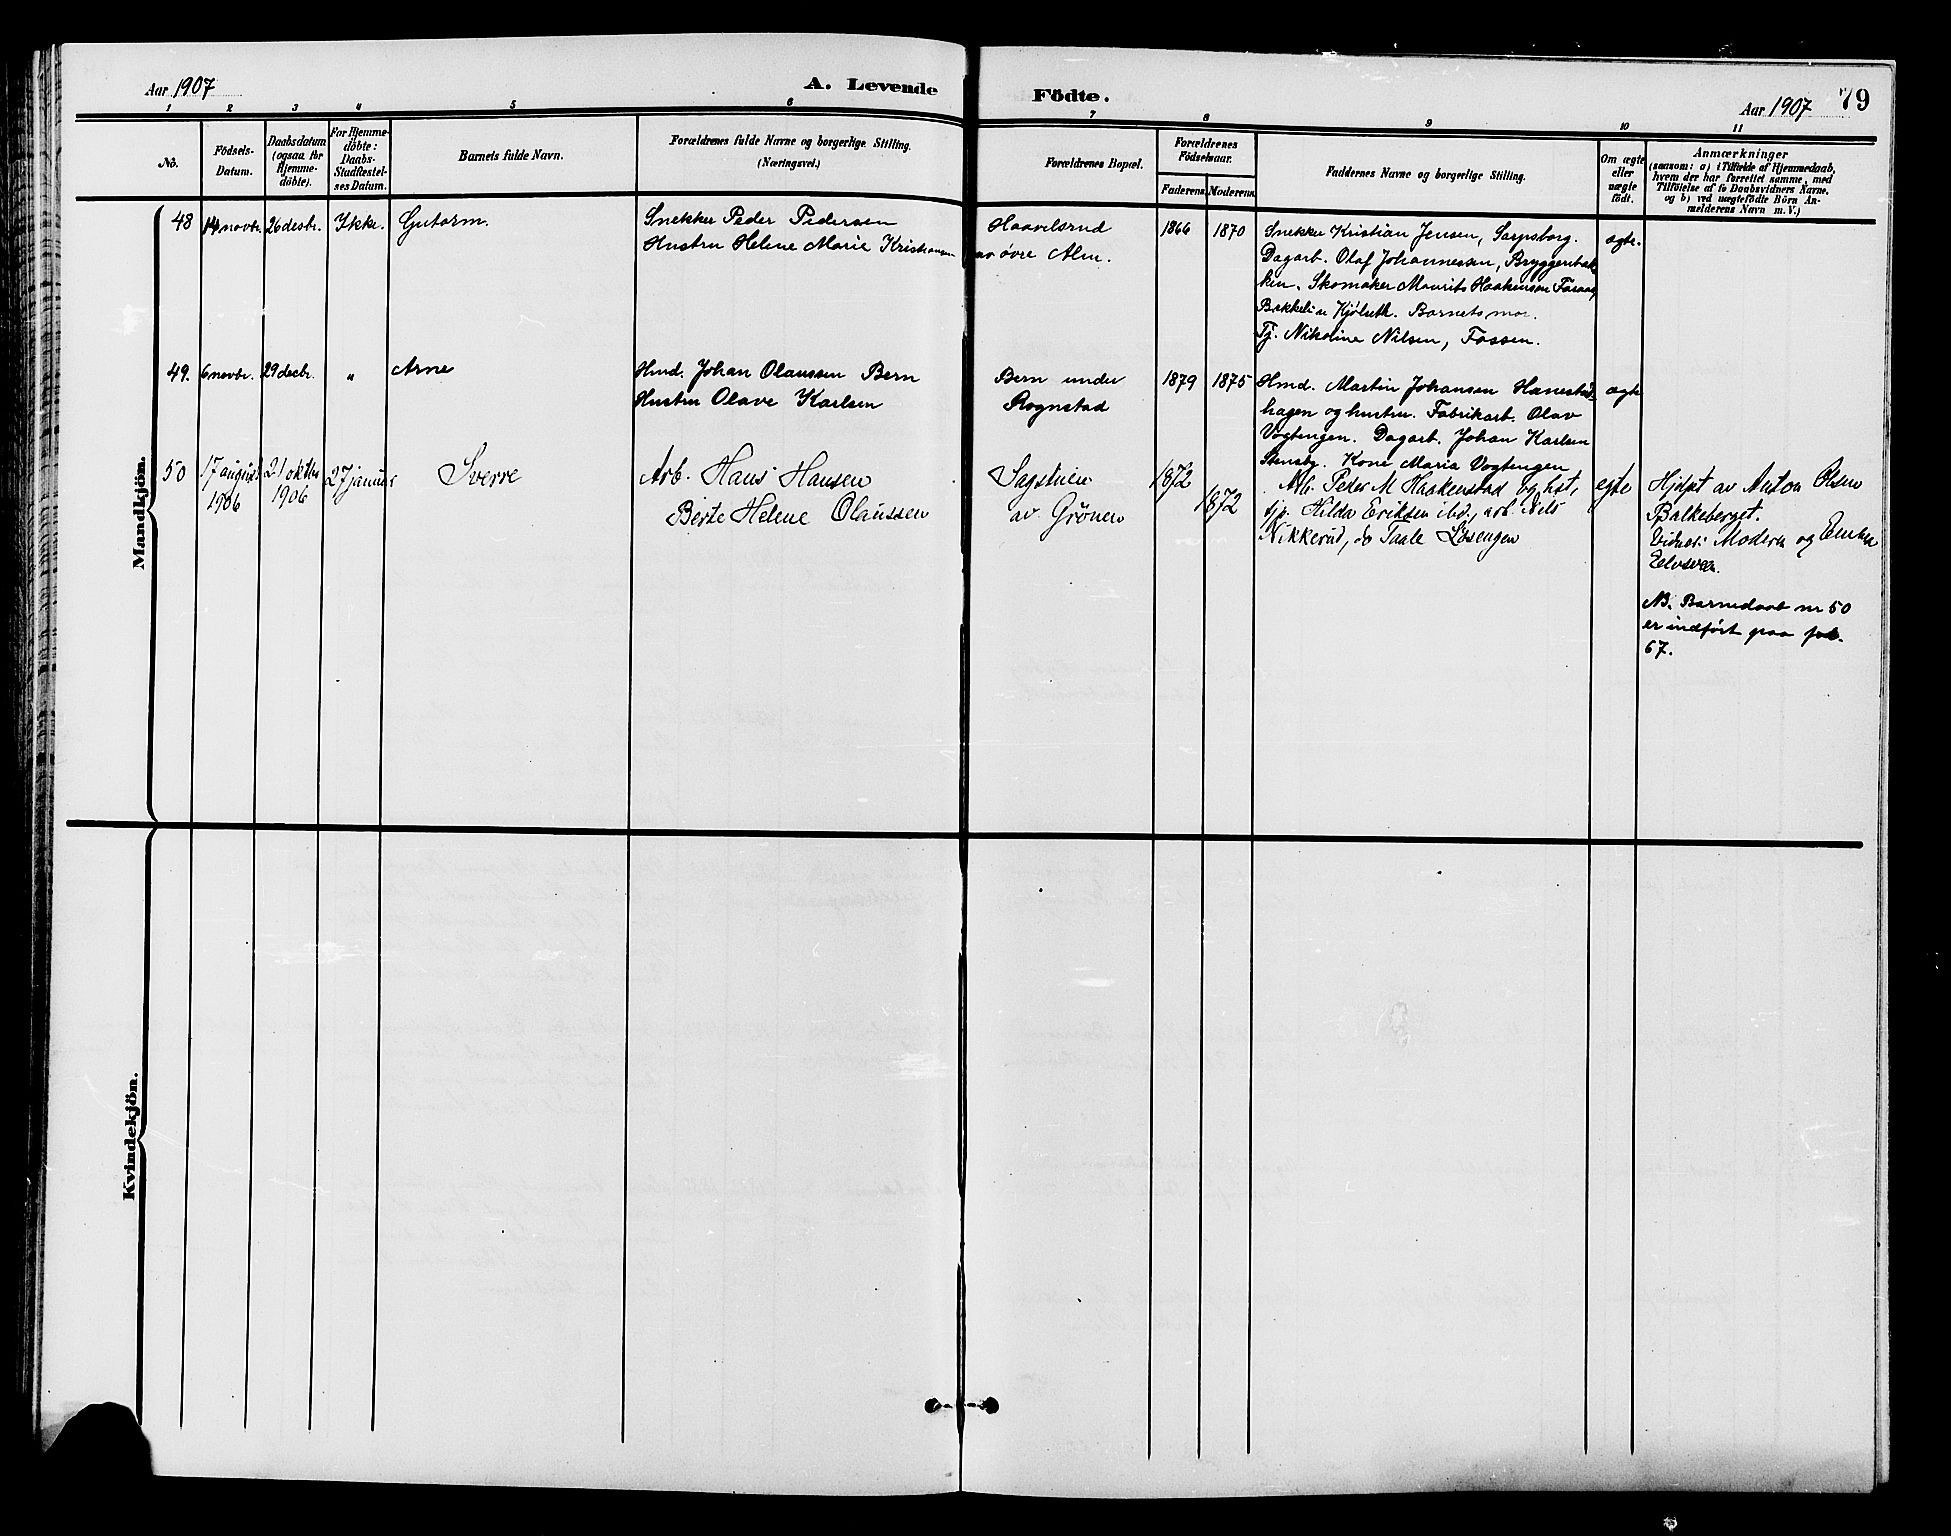 Aar 1907
A. Levende
Födte.
Aar 1907
79
1
2
3
4
5
6
7
8
9
10
11
No.
Födsels-
Datum.
Daabsdatum
(ogsaa for
Hjemme-
döbte).
For Hjemme-
döbte:
Daabs-
Stadfæstel-
ses Datum.
Barnets fulde Navn.
Forældrenes fulde Navne og borgerlige Stilling.
(Næringsvei.)
Forældrenes Bopæl.
Forældrenes
Födselsaar.
Faderens.
Moderens.
Faddernes Navne og borgerlige Stilling.
Om ægte
eller
uægte
født.
Anmærkninger
(saasom: a) i Tilfælde af Hjemmedaab,
hvem der har forrettet samme, med
Tilföielse af to Daabsvidners Navne,
og b) ved uægtefödte Börn An-
melderens Navn m. V.)
Mandkjön.
48
14 novbr.
26 desbr.
Ikke.
Gutorm.
Snekker Peder Pedersen
Hustru Helene Marie Kristiansen
Haavelsrud
av övre Alm.
1866
1870
Snekker Kristian Jensen, Sarpsborg.
Dagarb. Olaf Johannessen, Bryggeribak-
ken. Skomaker Maurits Haakensen
Kjölseth. Barnets mor.
Pg. Nikoline Nilsen, Fossen.
ægte.
49.
6 novbr.
29 decbr.
"
Arne
Hmd. Johan Olaussen Bern
Hustru Olave Karlsen
Bern under
Rognstad
1879
1875
Hmd. Martin Johansen Hanestad-
hagen og hustru. Fabrikarb. Olav
Vogtengen. Dagarb. Johan Karlsen
Stensby. Kone Maria Vogtengen
ægte
50
17 august
1906
21 oktbr
1906
27 januar
Sverre
Arb. Hans Hansen
Berte Helene Olaussen
Sagstuen
av Grönen
1872
1872
Arb. Peder M Haakenstad og hst,
Hilda Eriksen ibd., arb. Nils
Nikkerud, do Taale Lösengen
egte
Hjdpt av Anton Olsen
Balkeberget.
Vidner: Moderen og
NB. Barnedaab nr 50
er indført paa fol.
67.
Kvindekjön.